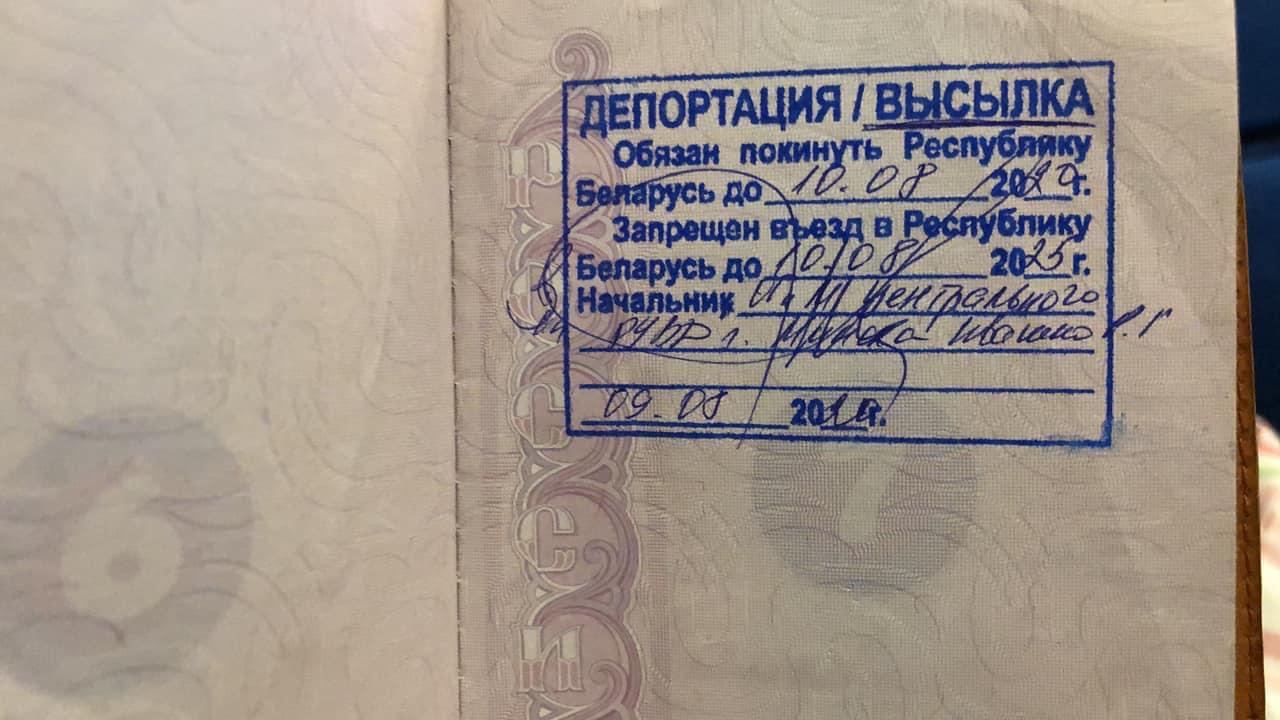 ДЕПОРТАЦИЯ / ВЫСЫЛКА
Обязан покинуть Республику
Беларусь до 10.08 2020г.
Запрещен въезд в Республику
Беларусь до 10.08 2025г.
Начальник Центрального
РУВД г. Минска
09.08 2020г.
Р
С
С
И
6
7